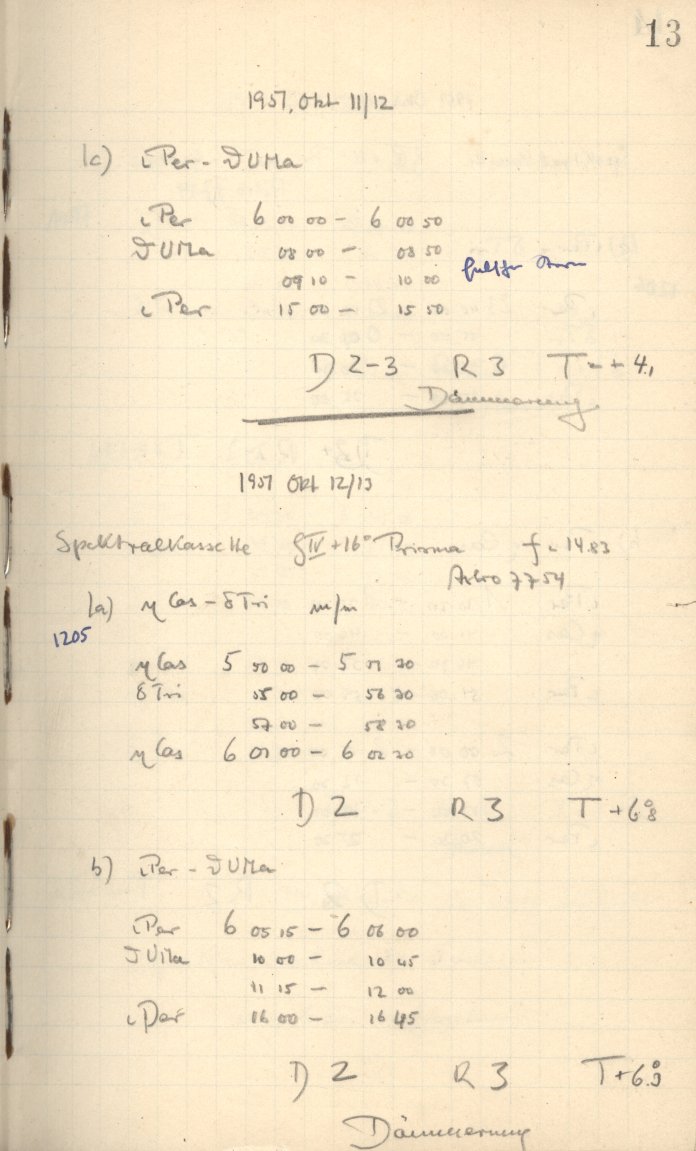 13
1957, Okt 11/12
1c) ι Per - ϑ UMa
ι Per 6 00 00 - 6 00 50
ϑ UMa 08 00 - 08 50
09 10 - 10 00 falscher Stern
ι Per 15 00 - 15 50
D 2-3 R 3 T = + 4,1
Dämmerung
1957 Okt 12/13
Spektralkassette g IV + 16° Prisma f = 14.83
Astro 7754
1a) η Cas - δ Tri m/m
1205
η Cas 5 50 00 - 5 51 30
δ Tri 55 00 - 56 30
57 00 - 58 30
η Cas 6 01 00 - 6 02 30
D 2 R 3 T + 6°.8
b) ι Per - ϑ UMa
ι Per 6 05 15 - 6 06 00
ϑ UMa 10 00 - 10 45
11 15 - 12 00
ι Per 16 00 - 16 45
D 2 R 3 T + 6°.9
Dämmerung